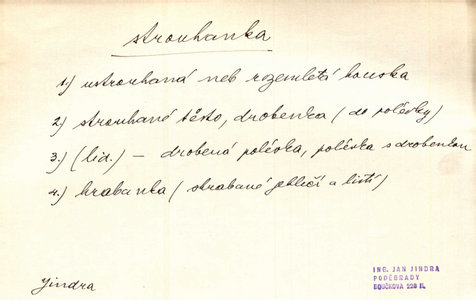 strouhanka
1.) ustrouhaná neb rozemletá houska
2.) strouhané těsto, drobenka (do polévky)
3.) (lid.) – drobená polévka, polévka s drobenkou
4.) hrabanka (shrabané jehličí a listí)
Jindra
ING. JAN JINDRA
PODĚBRADY
BOUČKOVA 228 II.